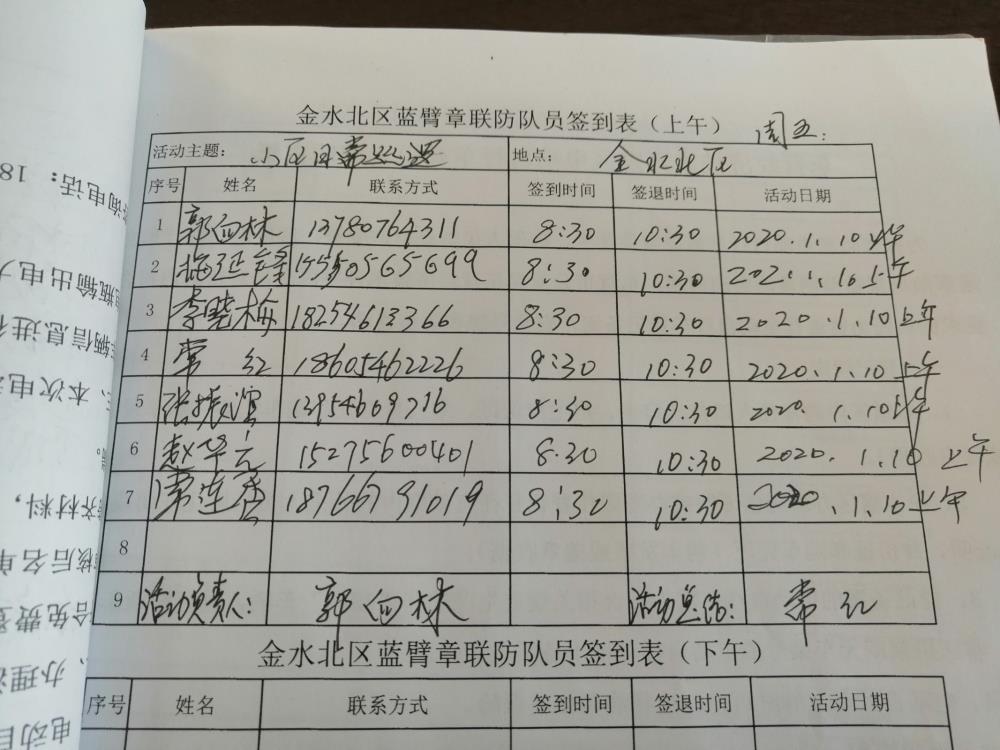 金水北区蓝臂章联防队员签到表（上午） 周五:
活动主题: 小区日常巡逻 地点: 金水北区
序号 姓名 联系方式 签到时间 签退时间 活动日期
1 郭向林 13780764311 8:30 10:30 2020.1.10上午
2 15550565699 8:30 10:30 2020.1.10上午
3 李晓梅 18254613366 8:30 10:30 2020.1.10上午
4 常红 18605462226 8:30 10:30 2020.1.10上午
5 张振滨 13954609716 8:30 10:30 2020.1.10上午
6 赵华元 15275600401 8:30 10:30 2020.1.10上午
7 常连香 18766791019 8:30 10:30 2020.1.10上午
8
9 活动负责人: 郭向林 活动总结: 常红
金水北区蓝臂章联防队员签到表（下午）
序号 姓名 联系方式 签到时间 签退时间 活动日期
询电话: 18
瓶输出电力
辆信息进行
、本次电动
济材料，
核后名单
合免费登
、办理
电动自